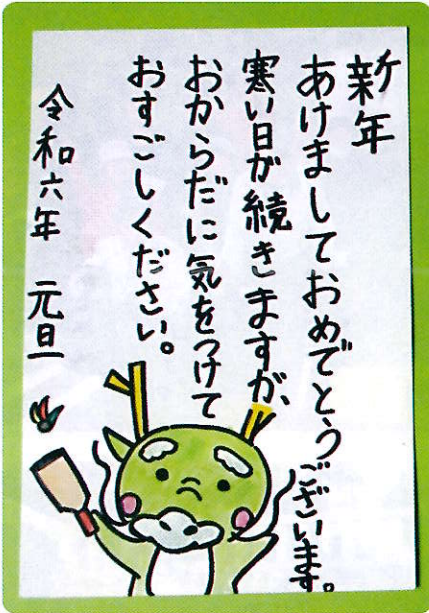 新年
あけましておめでとうございます。
寒い日が続きますが、
おからだに気をつけて
おすごしください。
令和六年 元旦